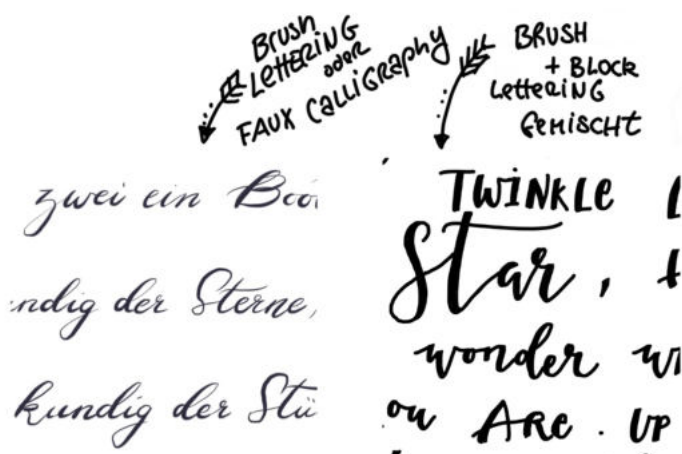 Brush
LETTERING
oder
FAUX CALLIGRAPHY
BRUSH
+ BLOCK
LETTERING
GEMISCHT
zwei ein Boo
ndig der Sterne,
kundig der Stü
TWINKLE L
Star, t
wonder w
ou ARE. UP